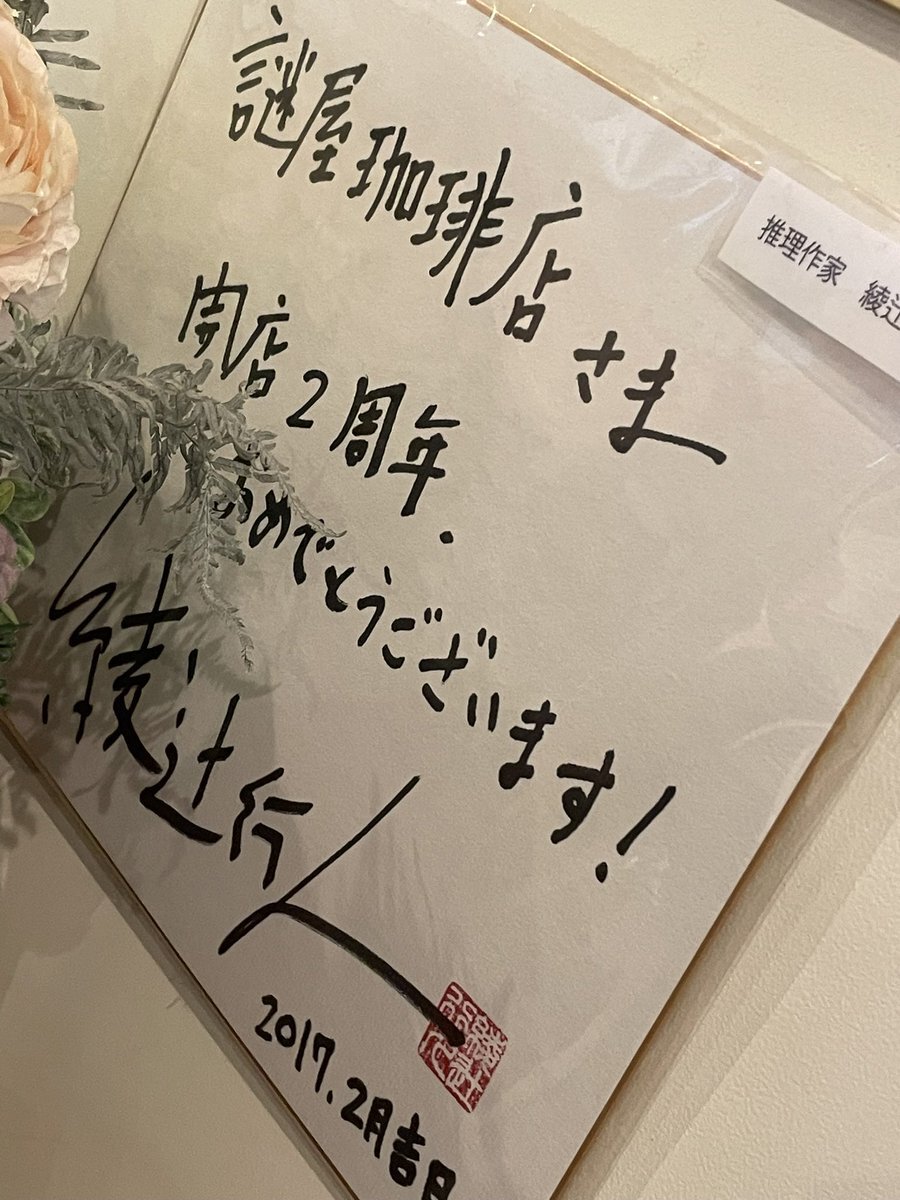 謎屋珈琲店さま
開店2周年.
おめでとうございます!
綾辻行人
2017.2月吉日
推理作家 綾辻